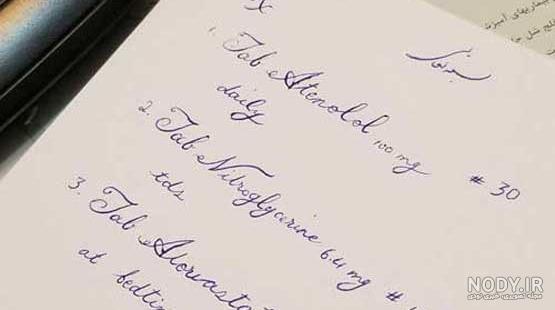 1. Tab Atenolol 100 mg # 30
daily
2. Tab Nitroglycerine 6.4 mg #
tds
3. Tab Atorvasta
at bedtim
NODY.IR